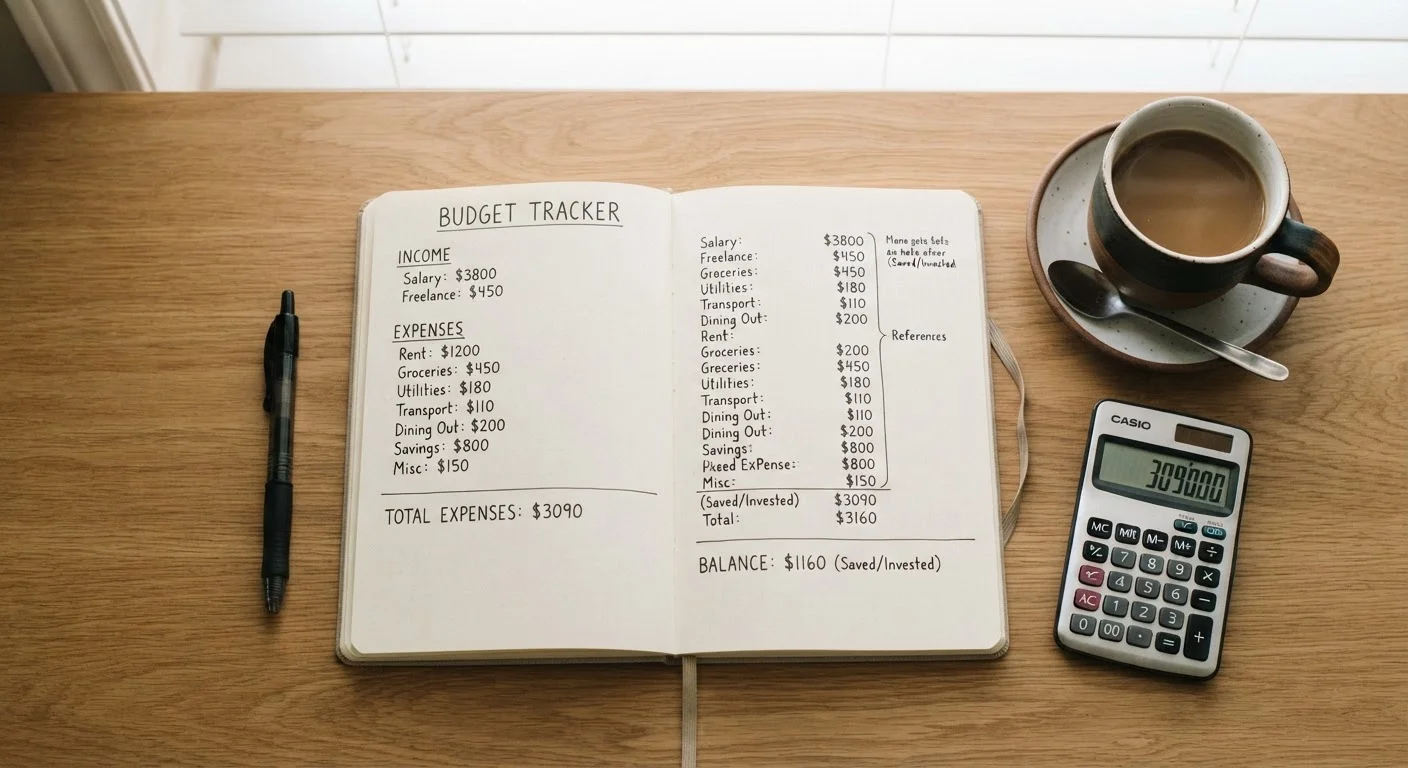 BUDGET TRACKER
INCOME
Salary: $3800
Freelance: $450
EXPENSES
Rent: $1200
Groceries: $450
Utilities: $180
Transport: $110
Dining Out: $200
Savings: $800
Misc: $150
TOTAL EXPENSES: $3090
Salary: $3800
Freelance: $450
Groceries: $450
Utilities: $180
Transport: $110
Dining Out: $200
Rent:
Groceries: $200
Greceries: $450
Utilities: $180
Transport: $110
Dining Out: $110
Dining Out: $200
Savings: $800
ExPense: $800
Misc: $150
(Saved/Invested) $3090
Total: $3160
References
BALANCE: $1160 (Saved/Invested)
CASIO
309'000
MC M- M+ ÷
7 8 9 ×
4 5 6 −
AC 1 2 3 +
0 00 · =